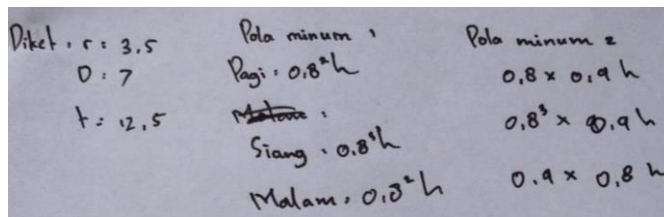 Diket : r = 3,5
D : 7
t = 12,5
Pola minum 1
Pagi : 0,8²h
:
Siang : 0,8³h
Malam : 0,8²h
Pola minum 2
0,8 x 0,9 h
0,8³ x 0,9 h
0.9 x 0,8 h